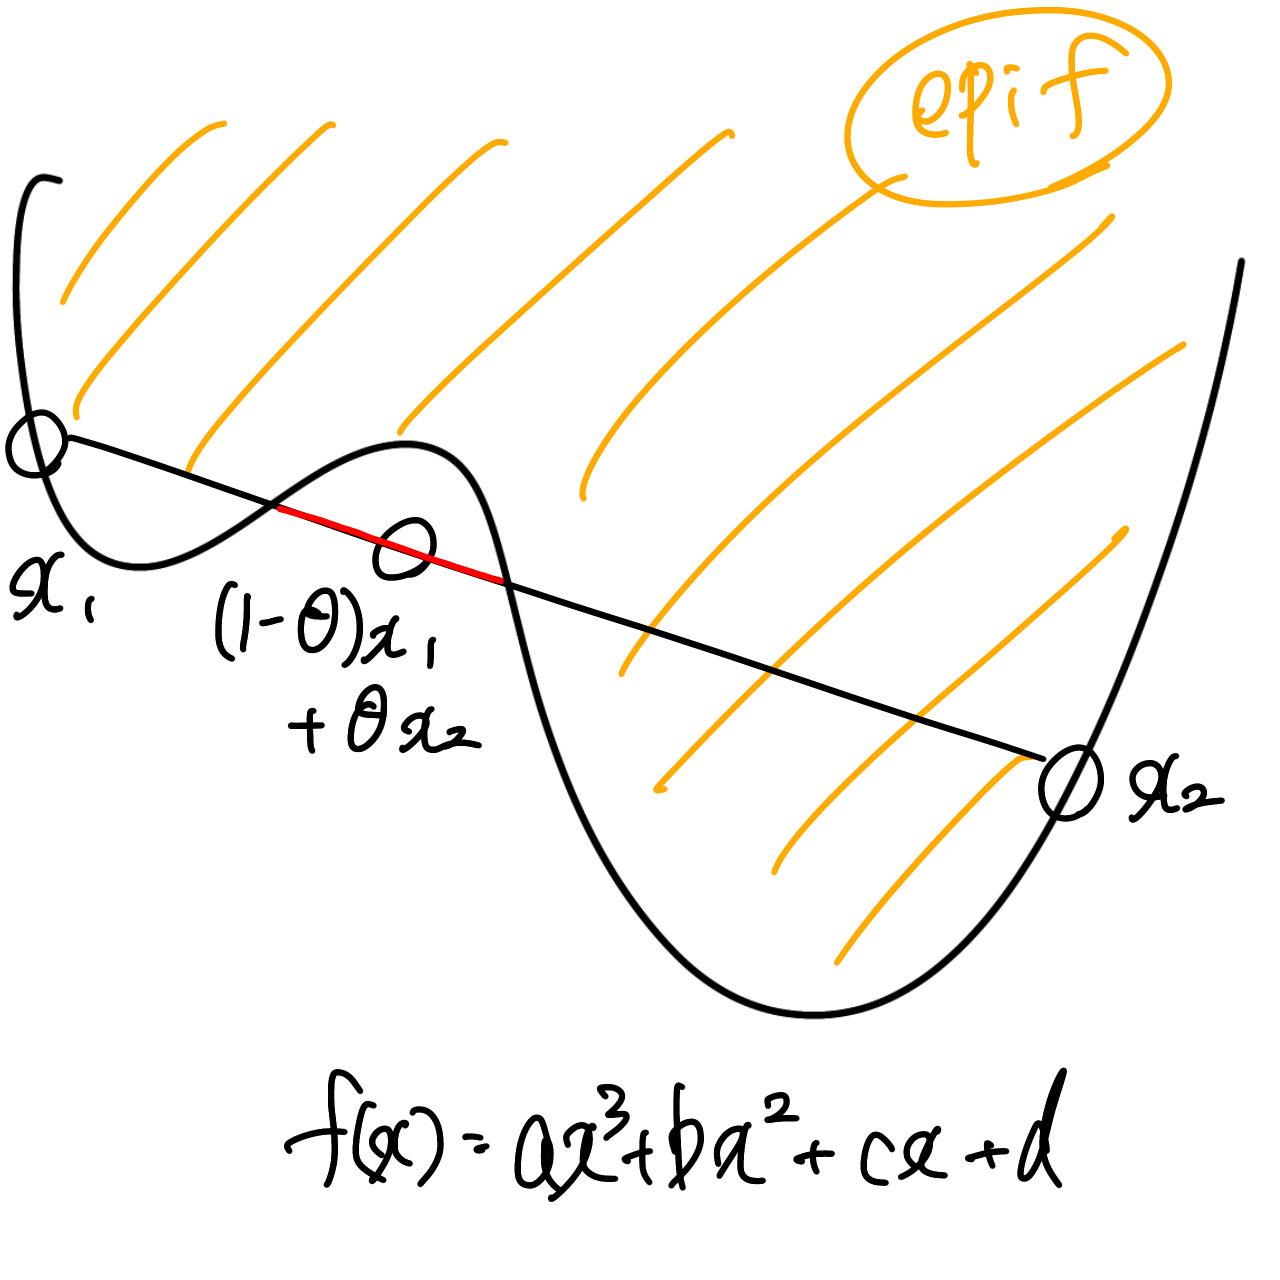 epi f
x₁
(1-θ)x₁
+ θx₂
x₂
f(x) = ax³+bx²+cx+d